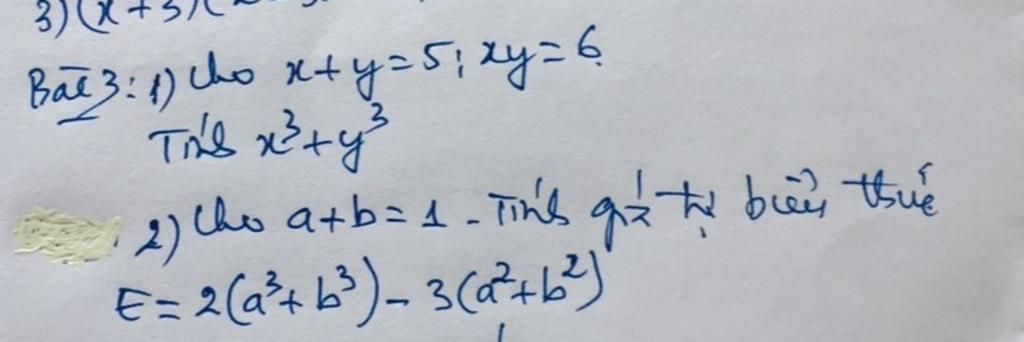 3)(x+3)(
Bài 3: 1) Cho x+y=5; xy=6.
Tính x³+y³
2) Cho a+b=1. Tính giá trị biểu thức
E=2(a³+b³)-3(a²+b²)